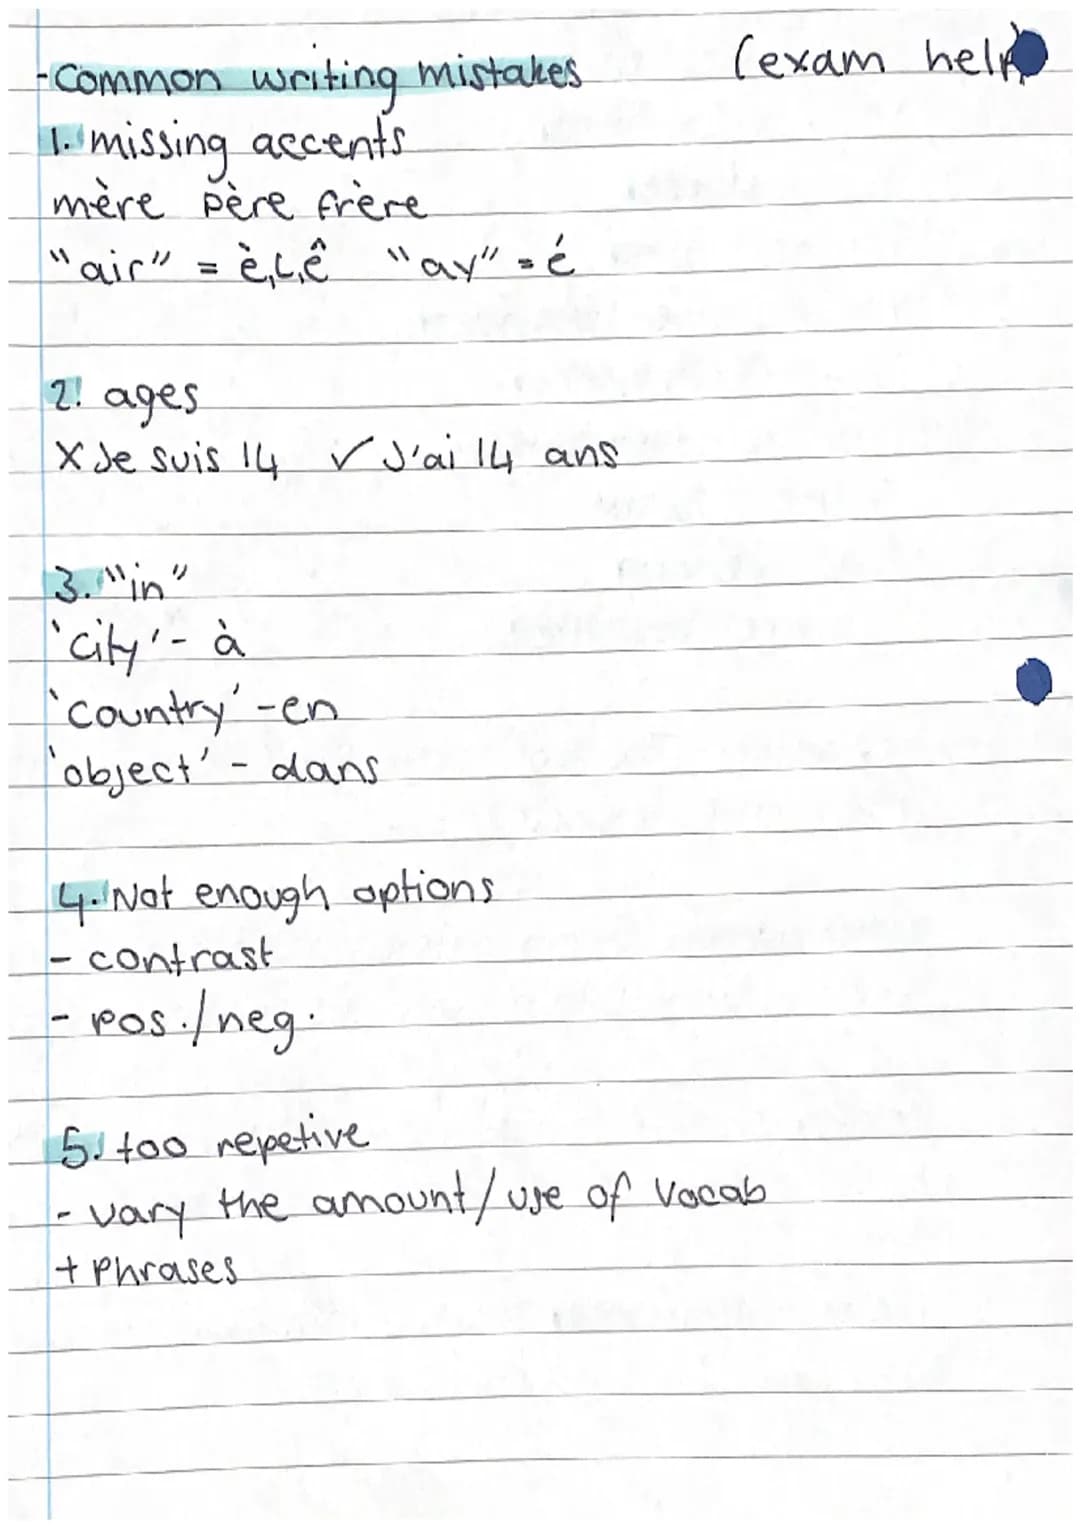 -Common writing mistakes (exam help
1. missing accents
mère père frère
"air" = è, ê "ay" = é
2. ages
X Je suis 14 ✓ J'ai 14 ans
3. "in"
'city' - à
'country' - en
'object' - dans
4. Not enough options
- contrast
- pos./neg.
5. too repetive
- vary the amount/use of vocab
+ phrases